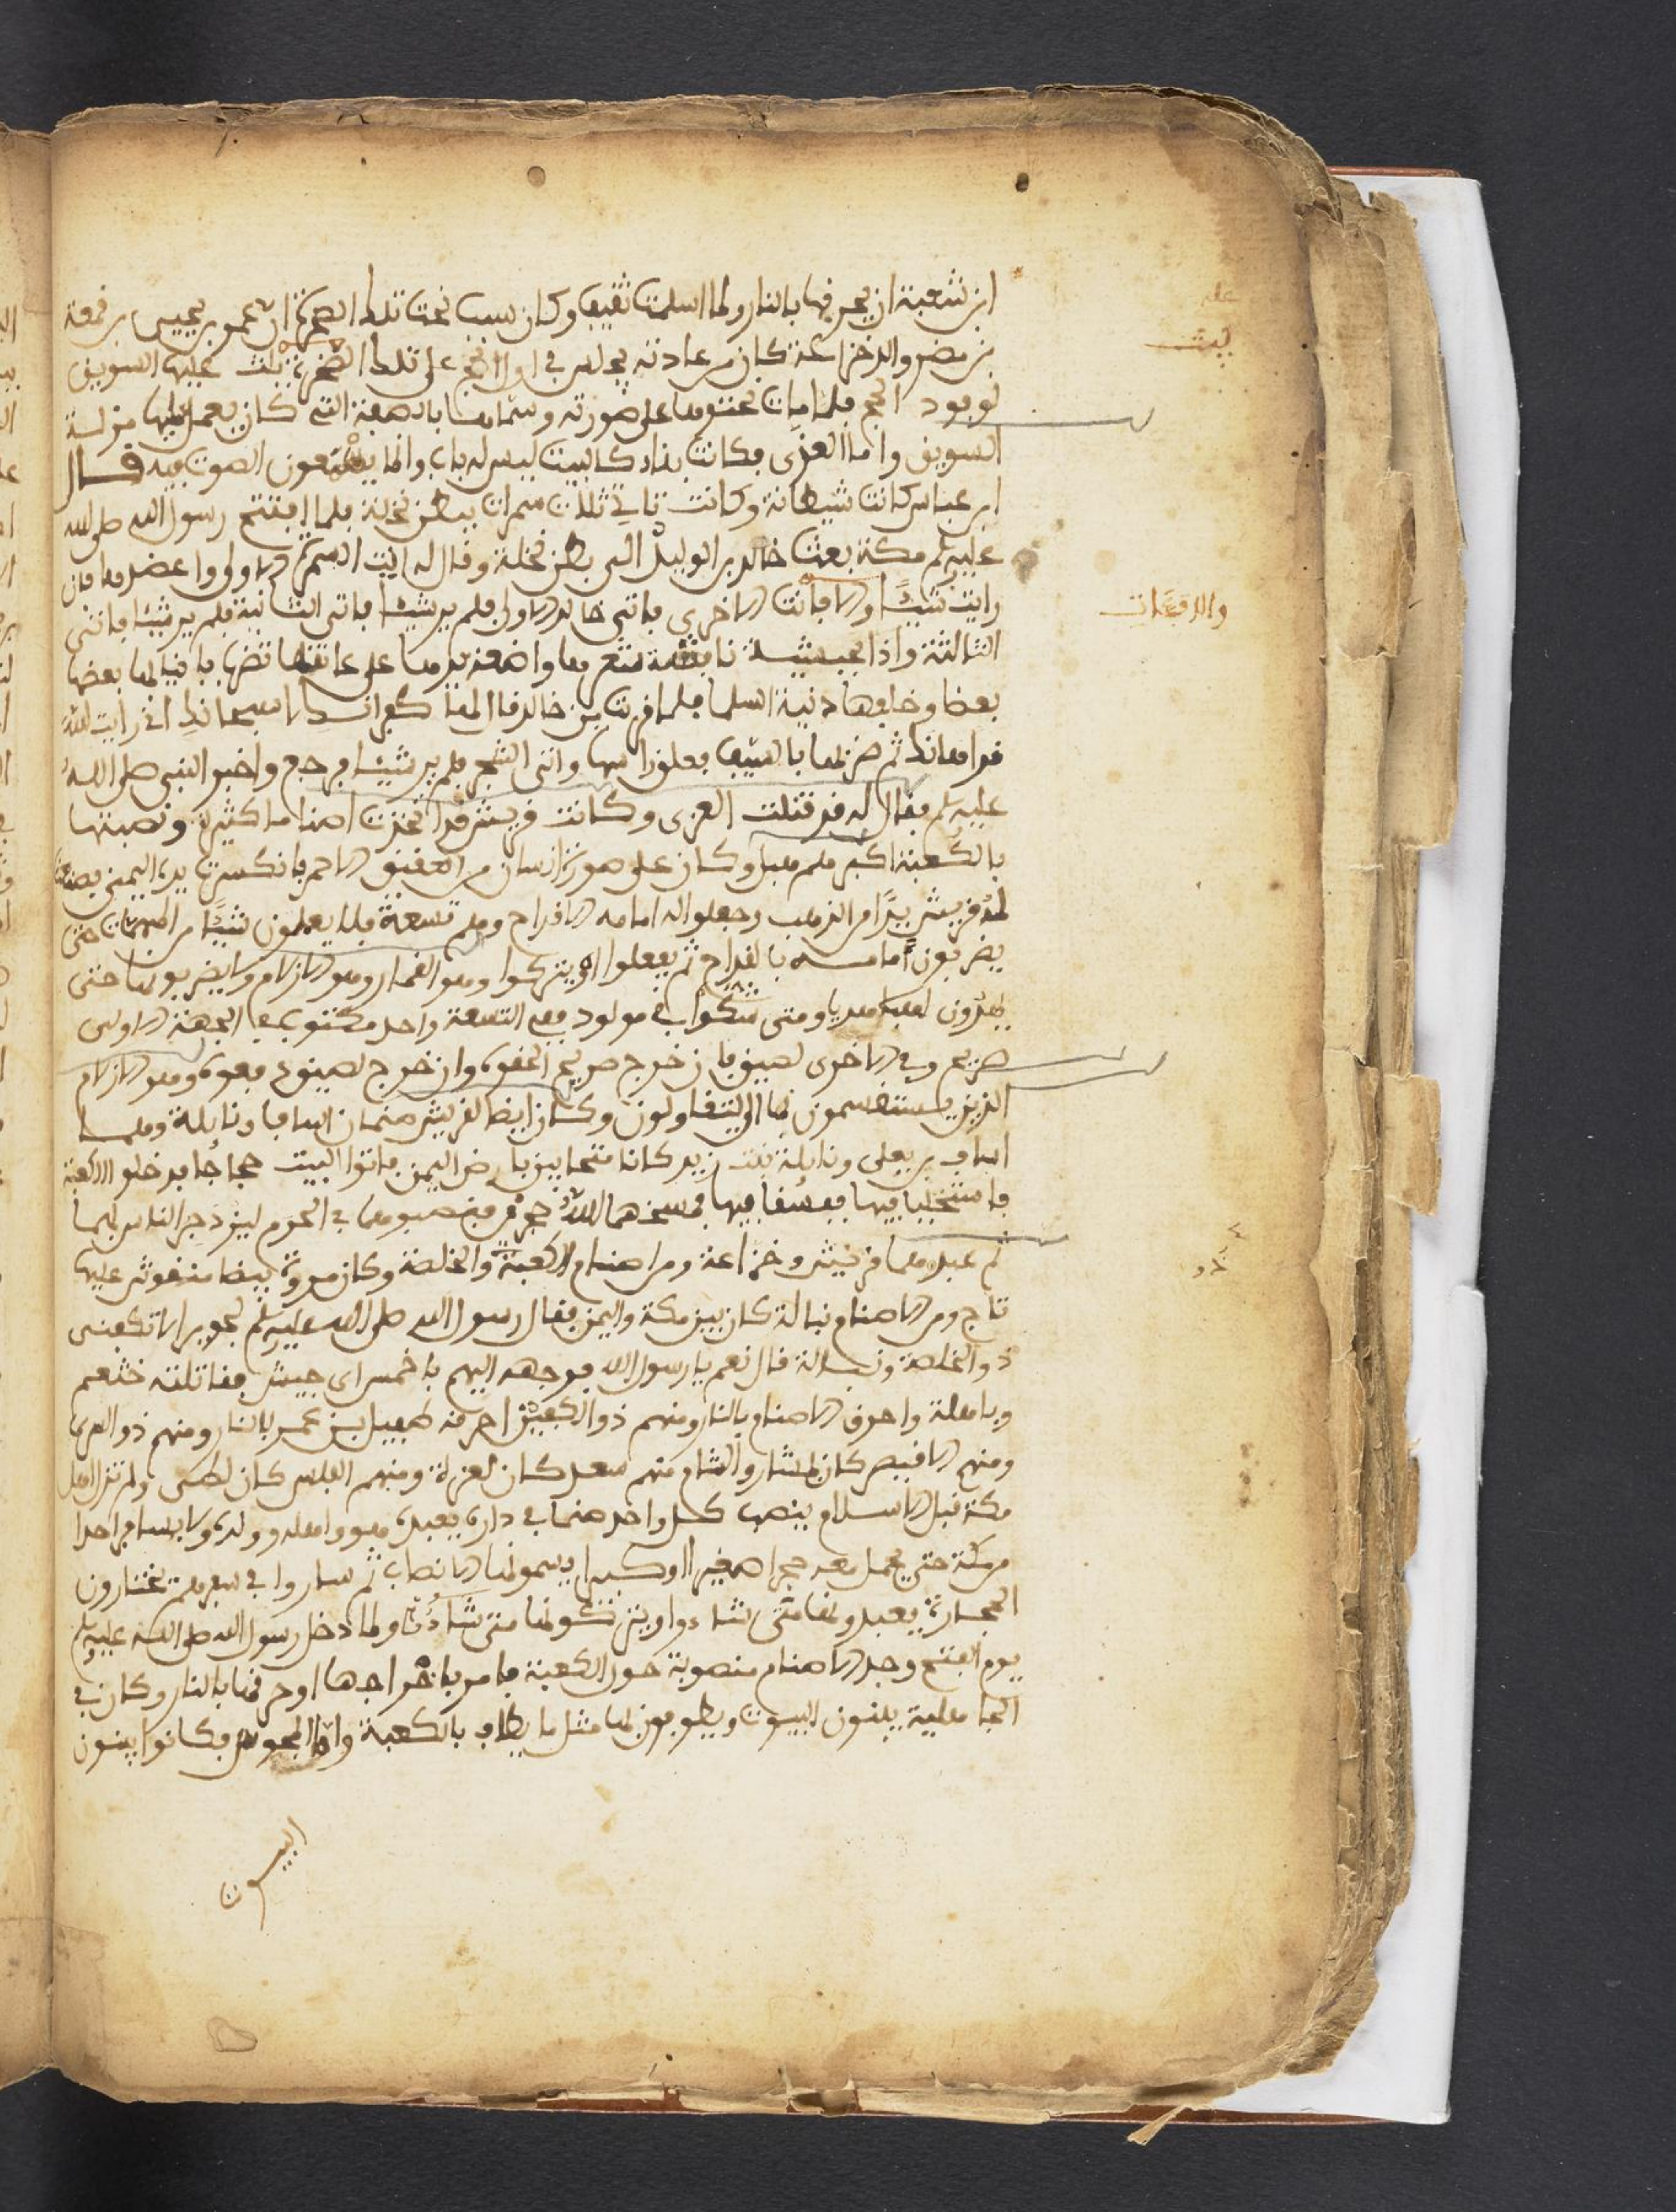 ابن شعبة ان يحرقها بالنار ولما اسلمت ثقيف وكان سبب نحت تلك الصخرة ان عمرو بن يحيى بن قمعة
بن مضر والد خزاعة كان من عادته يجلس في اول الحج على تلك الصخرة يلت عليها السويق
لوفود الحج فلما مات نحتوها على صورته وسماها بالصفة التي كان يفعل عليها من لت
السويق واما العزى فكانت بناء كالبيت ليس له باب وانما يسمعون الصوت فيه قال
ابن عباس كانت شيطانة وكانت تاتي ثلاث سمرات ببطن نخلة فلما افتتح رسول الله صلى الله
عليه وسلم مكة بعث خالد بن الوليد الى بطن نخلة وقال له ايت السمرة الاولى واعضدها فان
رايت شيئا والا فايت الاخرى فاتى خالد الاولى فلم ير شيئا فاتى الثانية فلم ير شيئا فاتى
الثالثة واذا بحبشية نافشة شعرها واضعة يديها على عاتقها تضرب بانيابها بعضها
بعضا وخلفها دنية السلما فلما قربت من خالد قال لها كفرانك لا سبحانك اني رايت الله
قد اهانك ثم ضربها بالسيف ففلق راسها واتى الشجر فلم ير شيئا فرجع واخبر النبي صلى الله
عليه وسلم فقال له قد قتلت العزى وكانت قريش قد اتخذت اصناما كثيرة ونصبتها
بالكعبة اكبرهم هبل وكان على صورة انسان من العقيق الاحمر فانكسرت يده اليمنى فصنعت
له قريش يدا من الذهب وجعلوا له امامه الاقداح وهم تسعة فلا يعملون شيئا من المهمات حتى
يضربون امامه بالقداح ثم يفعلوا او يتركوا وهو القمار وهو الازلام ولا يضربونها حتى
يهدون لهبل هديا ومتى شكوا في مولود فمع التسعة واحد مكتوب في الجهة الاولى
صريح وفي الاخرى لصيق فان خرج صريح الحقوه وان خرج لصيق نفوه وهو الازلام
الذين يستقسمون بها اي يتفاولون وكان ايضا لقريش صنمان اساف ونايلة وهما
اساف بن يعلى ونايلة بنت زيد كانا متحابين بارض اليمن فاتوا البيت حجاجا فدخلوا الكعبة
فاستخليا فيها ففسقا فيها فمسخهما الله حجرين فنصبوهما في الحرم ليزدجر الناس بهما
ثم عبدهما قريش وخزاعة ومن اصنام الكعبة والخلصة وكان مروة بيضا منقوش عليها
تاج ومن الاصنام تبالة كان بين مكة واليمن فقال رسول الله صلى الله عليه وسلم لجرير الا تكفني
ذو الخلصة وتبالة قال نعم يا رسول الله فوجهه اليهم باخمس اي جيش فقاتلته خثعم
وباهلة واحرق الاصنام بالنار ومنهم ذو الكفين احرقه طفيل بن عمير بالنار ومنهم ذو الشرى
ومنهم الاقيصر كان بمشارف الشام منهم سعد كان لعنزة ومنهم الفلس كان لطي ولم تزل اهل
مكة قبل الاسلام ينصب كل واحد صنما في داره يعبده هو واهله وولده ولا يسافر احدا
من مكة حتى يحمل معه حجرا صغيرا او كبيرا يسمونها الانصاب ثم ساروا في سفرهم يختارون
الحجارة يعبدونها متى شاءوا ويتركونها متى شاءوا ولما دخل رسول الله صلى الله عليه وسلم
يوم الفتح وجد الاصنام منصوبة حول الكعبة فامر باخراجها وحرقها بالنار وكان في
الجاهلية يبنون البيوت ويطوفون بها مثل ما يطاف بالكعبة واما المجوس فكانوا يبنون
البيوت
عليه
يلت
والا فات